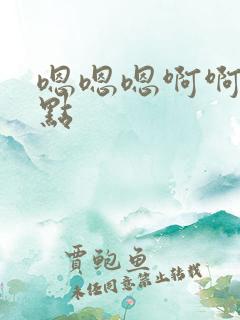 嗯嗯嗯啊啊
點
賈鲍鱼
未经同意禁止转载